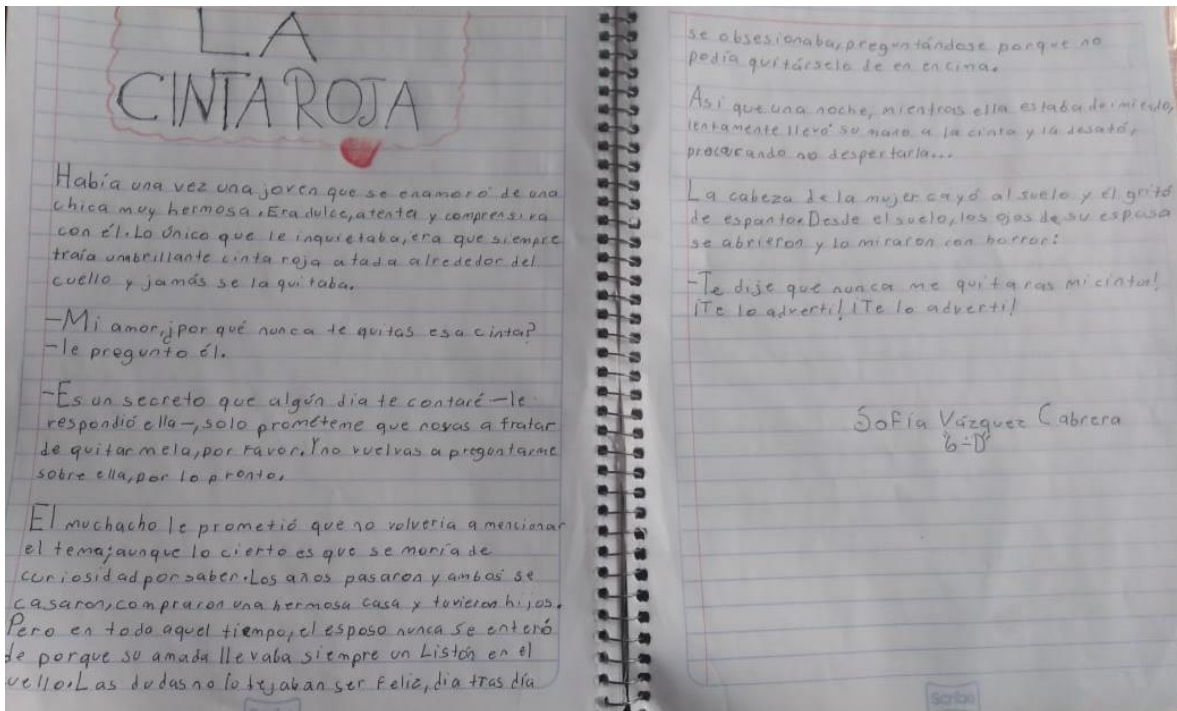 LA
CINTA ROJA
Había una vez una joven que se enamoró de una
chica muy hermosa. Era dulce, atenta y comprensiva
con él. Lo único que le inquietaba, era que siempre
traía una brillante cinta roja atada alrededor del
cuello y jamás se la quitaba.
-Mi amor, ¿por qué nunca te quitas esa cinta?
-le pregunto él.
-Es un secreto que algún dia te contaré -le
respondió ella-, solo prométeme que no vas a tratar
de quitarmela, por favor. Y no vuelvas a preguntarme
sobre ella, por lo pronto.
El muchacho le prometió que no volveria a mencionar
el tema; aunque lo cierto es que se moria de
curiosidad por saber. Los años pasaron y ambos se
casaron, compraron una hermosa casa y tuvieron hijos.
Pero en todo aquel tiempo, el esposo nunca se enteró
de porque su amada llevaba siempre un Listón en el
uello. Las dudas no lo dejaban ser feliz, dia tras día
se obsesionaba, preguntándose porque no
podía quitársela de en encima.
Asi que una noche, mientras ella estaba dormiendo,
lentamente llevó su mano a la cinta y la desató,
procurando no despertarla...
La cabeza de la mujer cayó al suelo y él gritó
de espanto. Desde el suelo, los ojos de su esposa
se abrieron y lo miraron con horror:
-Te dije que nunca me quitaras mi cinta!
¡Te lo adverti! ¡Te lo adverti!
Sofía Vázquez Cabrera
6-D
Scribe